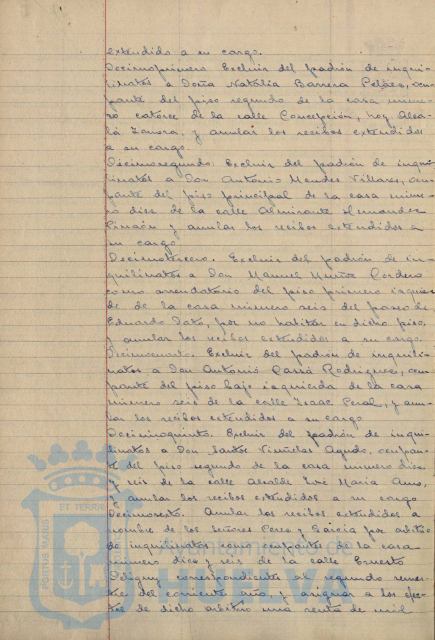 extendido a su cargo.
Decimoprimero. Excluir del padrón de inqui-
linatos a Doña Natalia Barrera Peláez, ocu-
pante del piso segundo de la casa núme-
ro catorce de la calle Concepción, hoy Alca-
lá Zamora, y anular los recibos extendidos
a su cargo.
Decimosegundo. Excluir del padrón de inqui-
linatos a Don Antonio Mendes Villares, ocu-
pante del piso principal de la casa núme-
ro diez de la calle Almirante Hernandez
Pinzón y anular los recibos extendidos a
su cargo.
Decimotercero. Excluir del padrón de in-
quilinatos a Don Manuel Muñoz Cordero
como arrendatario del piso primero izquier-
da de la casa número seis del paseo de
Eduardo Dato, por no habitar en dicho piso,
y anular los recibos extendidos a su cargo.
Decimocuarto. Excluir del padrón de inquili-
natos a Don Antonio Parra Rodriguez, ocu-
pante del piso bajo izquierda de la casa
número seis de la calle Isaac Peral, y anu-
lar los recibos extendidos a su cargo
Decimoquinto. Excluir del padrón de inqui-
linatos a Don Santos Viruelas Agudo, ocupan-
te del piso segundo de la casa número diez
y seis de la calle Alcalde José Maria Amo,
y anular los recibos extendidos a su cargo
Decimosexto. Anular los recibos extendidos a
nombre de los Señores Perez y Garcia por arbitrio
de inquilinatos como ocupantes de la casa
número diez y seis de la calle Ernesto
Deligny correspondiente al segundo semes-
tre del corriente año, y asignar a los efec-
tos de dicho arbitrio una renta de mil
PORTUS MARIS
ET TERRÆ
Ayuntamiento de
HUELVA